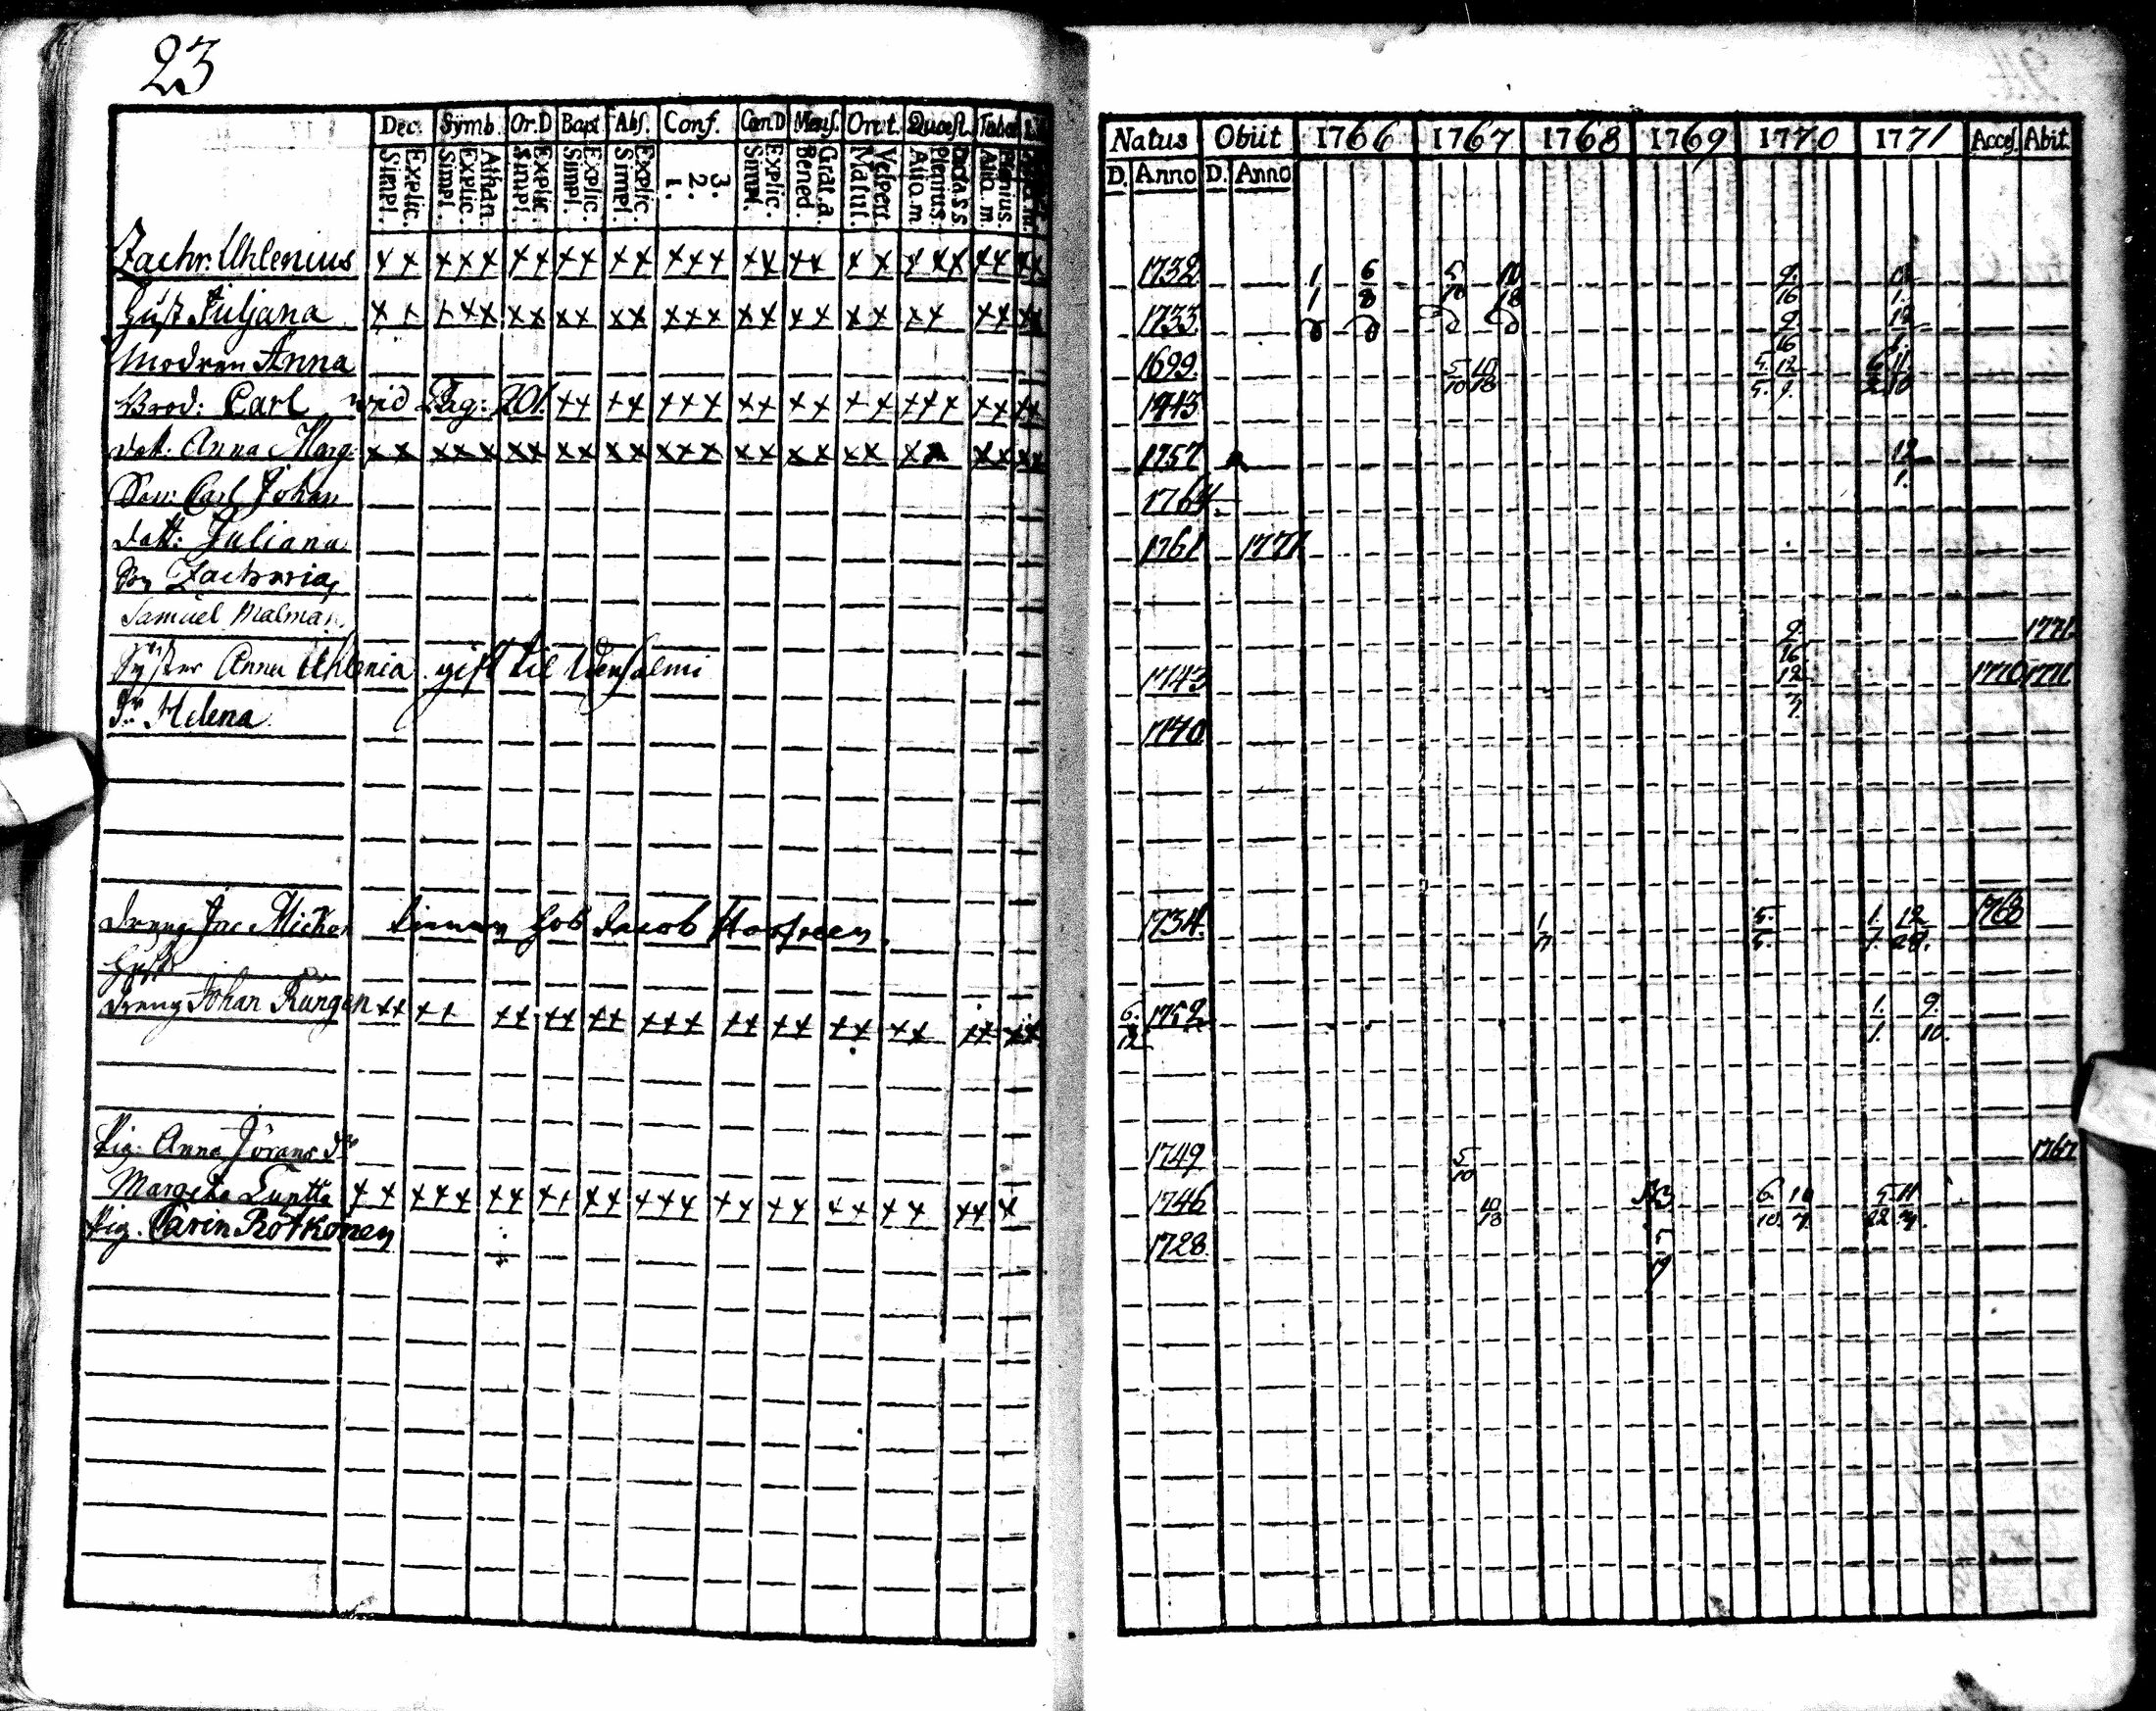 23
Dec. Symb. Or.D Bapt Abs. Conf. CœnD Mens. Orat. Quæst. Tabæ
Simpl. Explic. Simpl. Explic. Athan. Simpl. Explic. Simpl. Explic. Simpl. Explic. 1. 2. 3. Simpl. Explic. Bened. Grat.a Matut. Vespert. Atio.m Plenius. Dicta.s.s Atio.m Plenius.
Natus Obiit 1766 1767 1768 1769 1770 1771 Acces. Abit.
D. Anno D. Anno
Zachr. Uhlenius ×× ××× ×× ×× ×× ××× ×× ×× ×× ××× ×× ×× 1732 1/1 6/8 5/10 10/18 9./16 12/1.
Hust Juljana ×× ××× ×× ×× ×× ××× ×× ×× ×× ×× ×× ×× 1733 9./16 12/1.
Modren Anna 1699. 5/10 10/18 5./5. 12/9.
Brod: Carl wid Pag: 201. ×× ×× ××× ×× ×× ×× ××× ×× ×× 1743
dott. Anna Marg: ×× ××× ×× ×× ×× ××× ×× ×× ×× ×× ×× 1757 12/1.
Son: Carl Johan 1764.
dott: Juliana 1761 1771
Son Zacharias
Samuel Malman 9./16 1771
Syster Anna Uhlenia gift til Idensalmi 1743 12/7. 1770 1771
Dr Helena 1770
dreng Jac Michel 1734. 1/7 5./5. 1./1. 12/28. 1768
Hust
dreng Johan Rungen ×× ×× ×× ×× ×× ××× ×× ×× ×× ×× ×× ×× 6./12 1752 1./1. 9./10.
Pig. Anna Jörans dr 1749 5/10 1767
Margeta ×× ××× ×× ×× ×× ××× ×× ×× ×× ×× ×× × 1746 10/18 6./10. 10/7. 5/22 11/7.
Pig. Carin Rötkönen 1728. 5/19